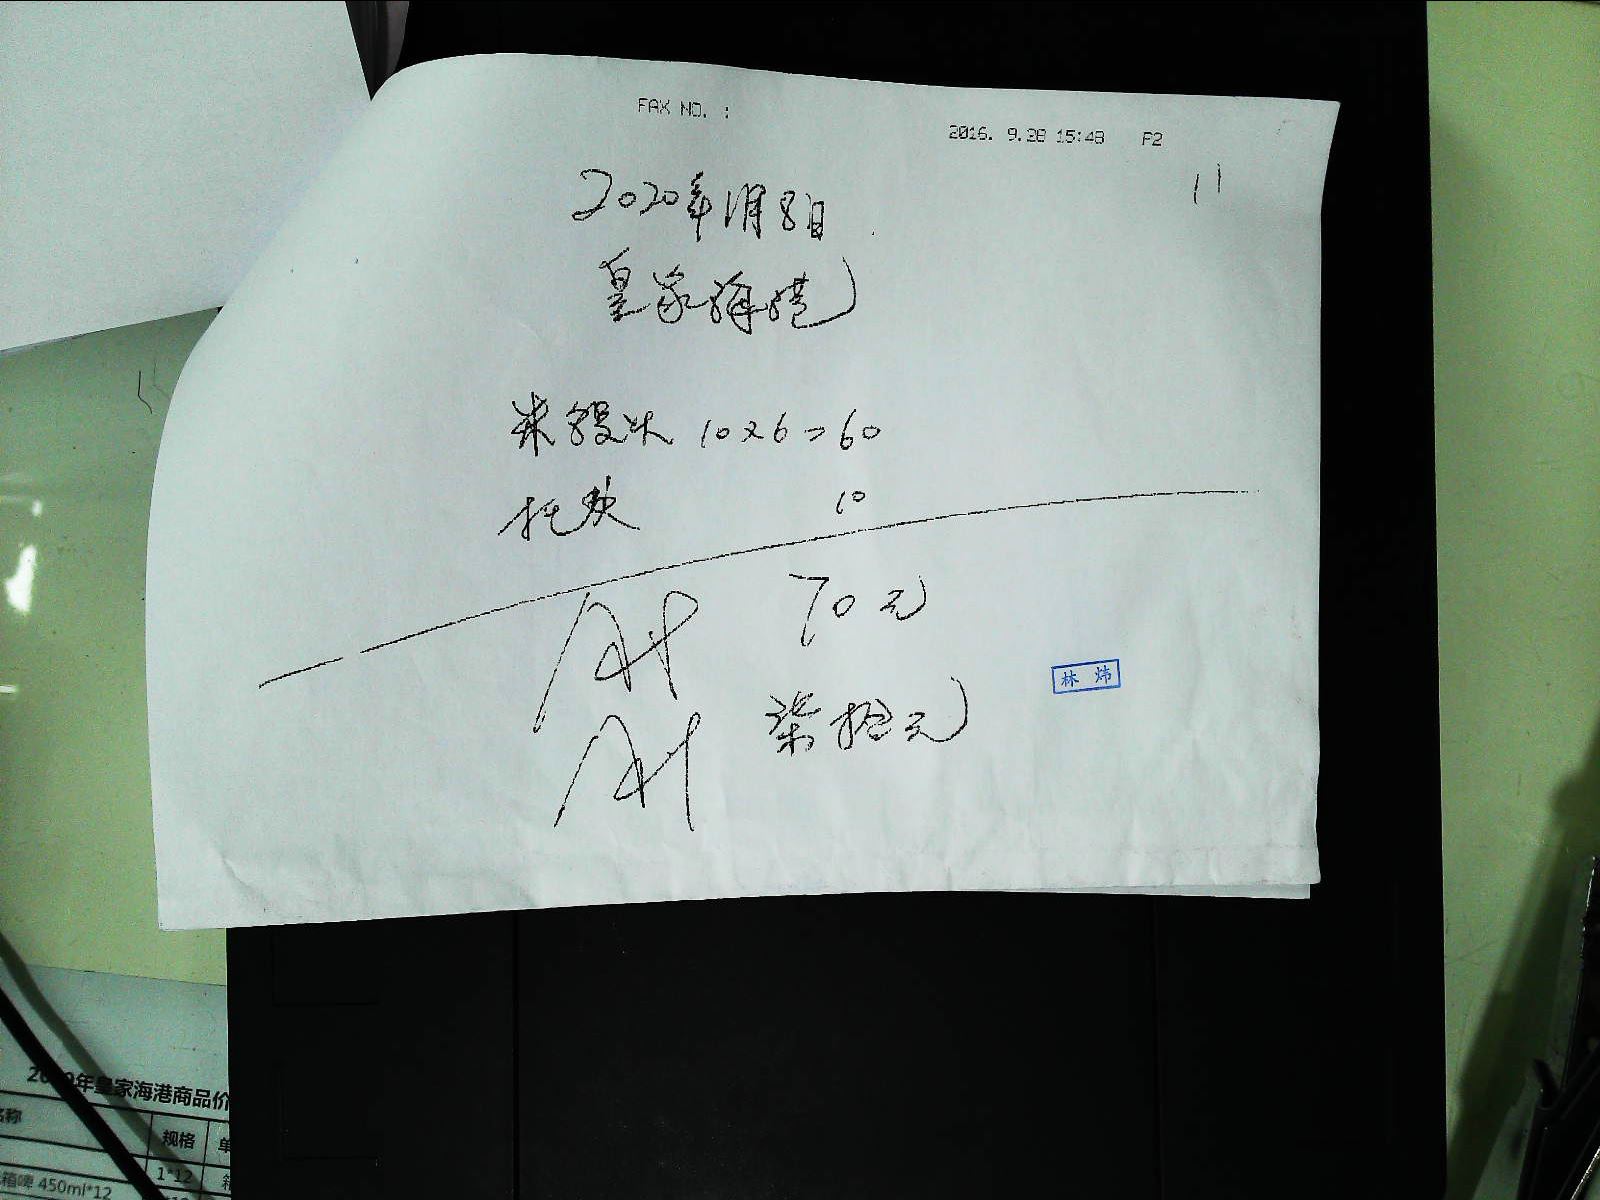 FAX NO. :
2016. 9.28 15:48 P2
2020年1月8日
皇家海港
10×6=60
托 10
70元
柒拾元
林 炜
年皇家海港商品价
名称
规格
单
1*12
箱
箱啤 450ml*12